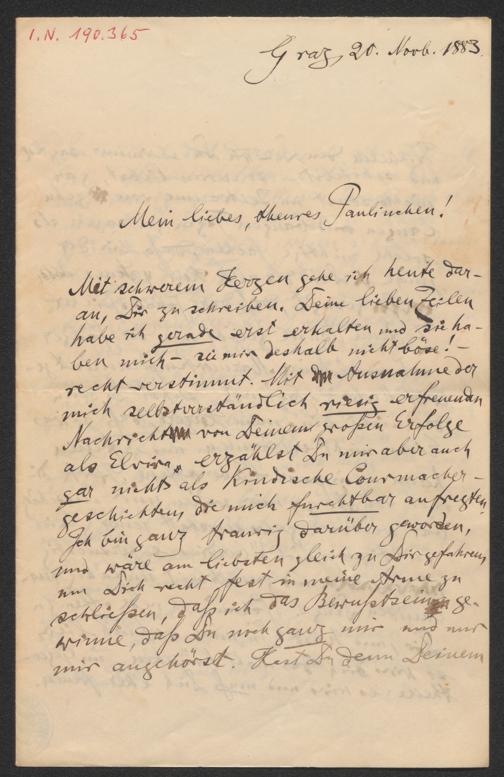 I.N. 190.365
Graz, 20. Novb. 1883.
Mein liebes, theures Paulinchen!
Mit schwerem Herzen gehe ich heute dar-
an, Dir zu schreiben. Deine lieben Zeilen
habe ich gerade erst erhalten und sie ha-
ben mich – sei mir deshalb nicht böse! –
recht verstimmt. Mit Ausnahme der
mich selbstverständlich riesig erfreuenden
Nachricht von Deinem großen Erfolge
als Elvira, erzählst Du mir aber auch
gar nichts als kindische Courmacher-
geschichten, die mich furchtbar aufregten.
Ich bin ganz traurig darüber geworden,
und wäre am liebsten gleich zu Dir gefahren,
um Dich recht fest in meine Arme zu
schließen, daß ich das Bewußtsein ge-
winne, daß Du noch ganz mir und nur
mir angehörst. Hast Du denn Deinem